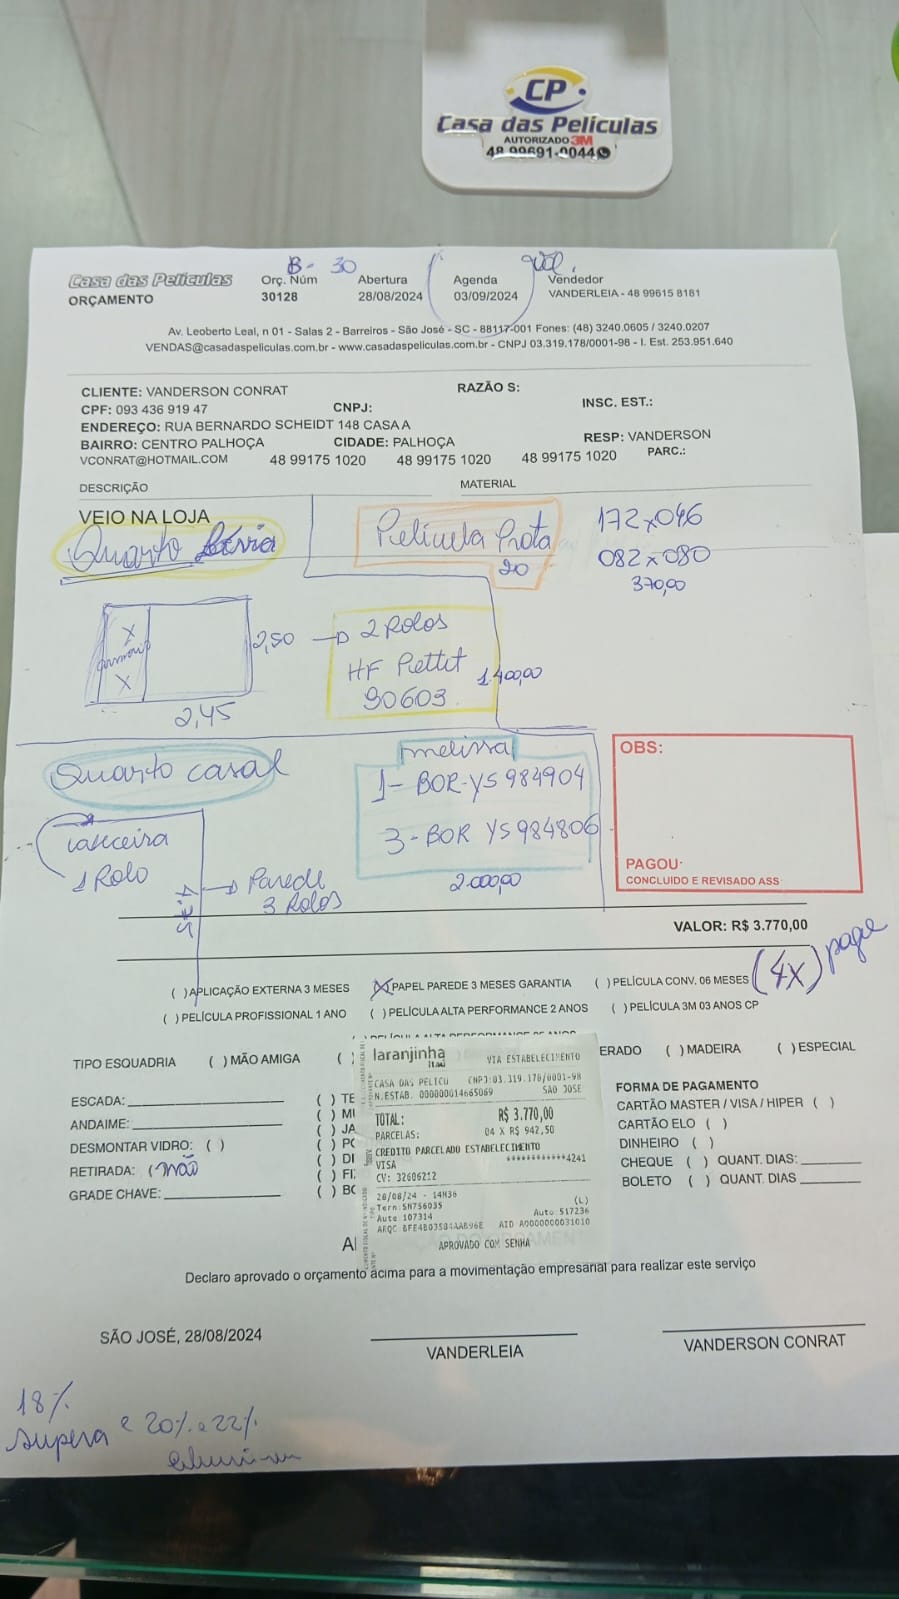 CP
Casa das Películas
AUTORIZADO 3M
48 99691-0044
B- 30
Casa das Películas
ORÇAMENTO
Orç. Núm
30128
Abertura
28/08/2024
Agenda
03/09/2024
Vendedor
VANDERLEIA - 48 99615 8181
Av. Leoberto Leal, n 01 - Salas 2 - Barreiros - São José - SC - 88117-001 Fones: (48) 3240.0605 / 3240.0207
VENDAS@casadaspeliculas.com.br - www.casadaspeliculas.com.br - CNPJ 03.319.178/0001-98 - I. Est. 253.951.640
CLIENTE: VANDERSON CONRAT
RAZÃO S:
CPF: 093 436 919 47
CNPJ:
INSC. EST.:
ENDEREÇO: RUA BERNARDO SCHEIDT 148 CASA A
BAIRRO: CENTRO PALHOÇA
CIDADE: PALHOÇA
RESP: VANDERSON
VCONRAT@HOTMAIL.COM
48 99175 1020
48 99175 1020
48 99175 1020
PARC.:
DESCRIÇÃO
MATERIAL
VEIO NA LOJA
Quarto
Película Prata
20
172x046
082x080
370,00
X
X
2,50
2,45
2 Rolos
HF
90603
1.400,00
Quarto casal
melissa
1- BOR-YS 984904
3- BOR YS 984806
2.000,00
1 Rolo
Parede
3 Rolos
OBS:
PAGOU
CONCLUIDO E REVISADO ASS
VALOR: R$ 3.770,00
(4x) pague
( ) APLICAÇÃO EXTERNA 3 MESES
(X) PAPEL PAREDE 3 MESES GARANTIA
( ) PELÍCULA CONV. 06 MESES
( ) PELÍCULA PROFISSIONAL 1 ANO
( ) PELÍCULA ALTA PERFORMANCE 2 ANOS
( ) PELÍCULA 3M 03 ANOS CP
TIPO ESQUADRIA
( ) MÃO AMIGA
(
ERADO
( ) MADEIRA
( ) ESPECIAL
ESCADA:
ANDAIME:
DESMONTAR VIDRO: ( )
RETIRADA: ( não
GRADE CHAVE:
( ) TE
( ) MI
( ) JA
( ) PC
( ) DI
( ) FI
( ) BO
laranjinha
Itaú
VIA ESTABELECIMENTO
CASA DAS PELICU
CNPJ:03.319.178/0001-98
N.ESTAB. 000000014665069
SAO JOSE
TOTAL:
R$ 3.770,00
PARCELAS:
04 X R$ 942,50
CREDITO PARCELADO ESTABELECIMENTO
VISA
************4241
CV: 32606212
28/08/24 - 14H36
(L)
Term:SN756035
Auto: 517236
Aute 107314
AID A0000000031010
APROVADO COM SENHA
FORMA DE PAGAMENTO
CARTÃO MASTER / VISA / HIPER ( )
CARTÃO ELO ( )
DINHEIRO ( )
CHEQUE ( ) QUANT. DIAS:
BOLETO ( ) QUANT. DIAS
Declaro aprovado o orçamento acima para a movimentação empresarial para realizar este serviço
SÃO JOSÉ, 28/08/2024
VANDERLEIA
VANDERSON CONRAT
18%
supera e 20% e 22%